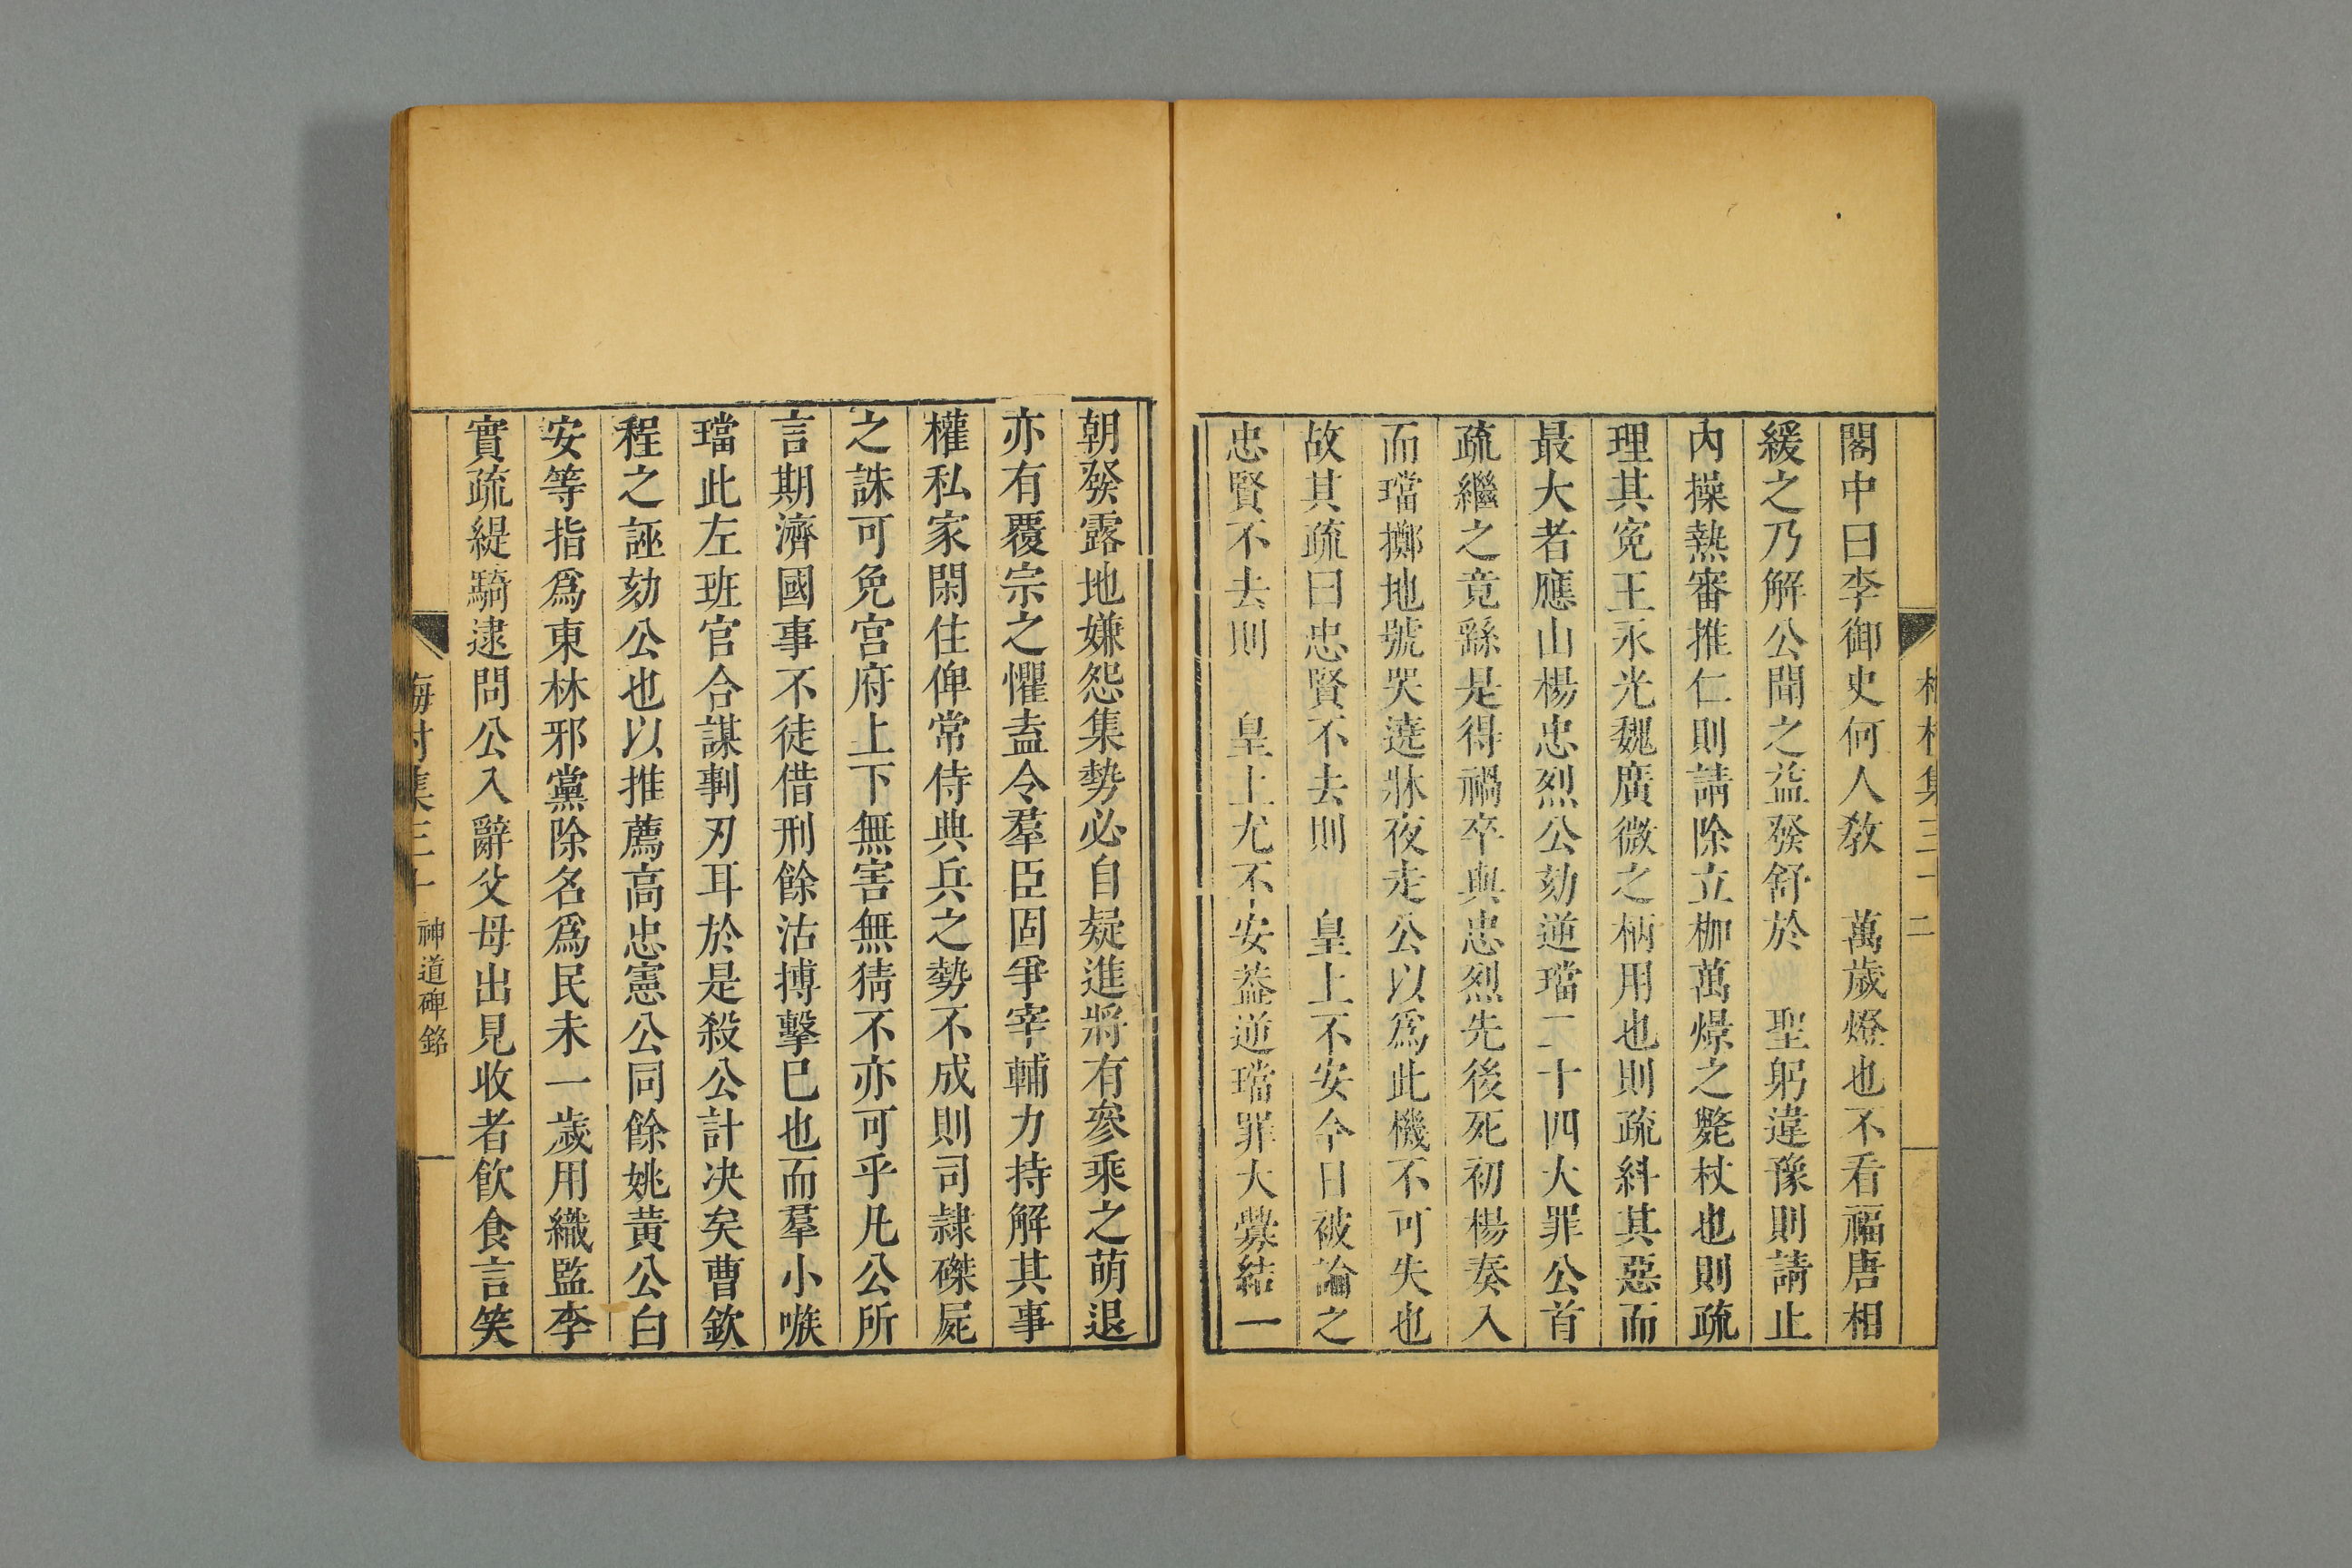 閣中曰李御史何人敎　萬歲燈也不看福唐相
緩之乃解公聞之益發舒於　聖躬違豫則請止
內操熱審推仁則請除立枷萬燝之斃杖也則疏
理其寃王永光魏廣微之柄用也則疏糾其惡而
最大者應山楊忠烈公劾逆璫二十四大罪公首
疏繼之竟繇是得禍卒與忠烈先後死初楊奏入
而璫擲地號哭遶牀夜走公以爲此機不可失也
故其疏曰忠賢不去則　皇上不安今日被論之
忠賢不去則　皇上尤不安葢逆璫罪大釁結一
朝發露地嫌怨集勢必自疑進將有參乘之萌退
亦有覆宗之懼盍令羣臣固爭宰輔力持解其事
權私家閑住俾常侍典兵之勢不成則司隷磔屍
之誅可免宮府上下無害無猜不亦可乎凡公所
言期濟國事不徒借刑餘沽搏擊已也而羣小嗾
璫此左班官合謀剚刃耳於是殺公計决矣曹欽
程之誣劾公也以推薦高忠憲公同餘姚黃公白
安等指爲東林邪黨除名爲民未一歲用織監李
實疏緹騎逮問公入辭父母出見收者飮食言笑
梅村集三十
神道碑銘